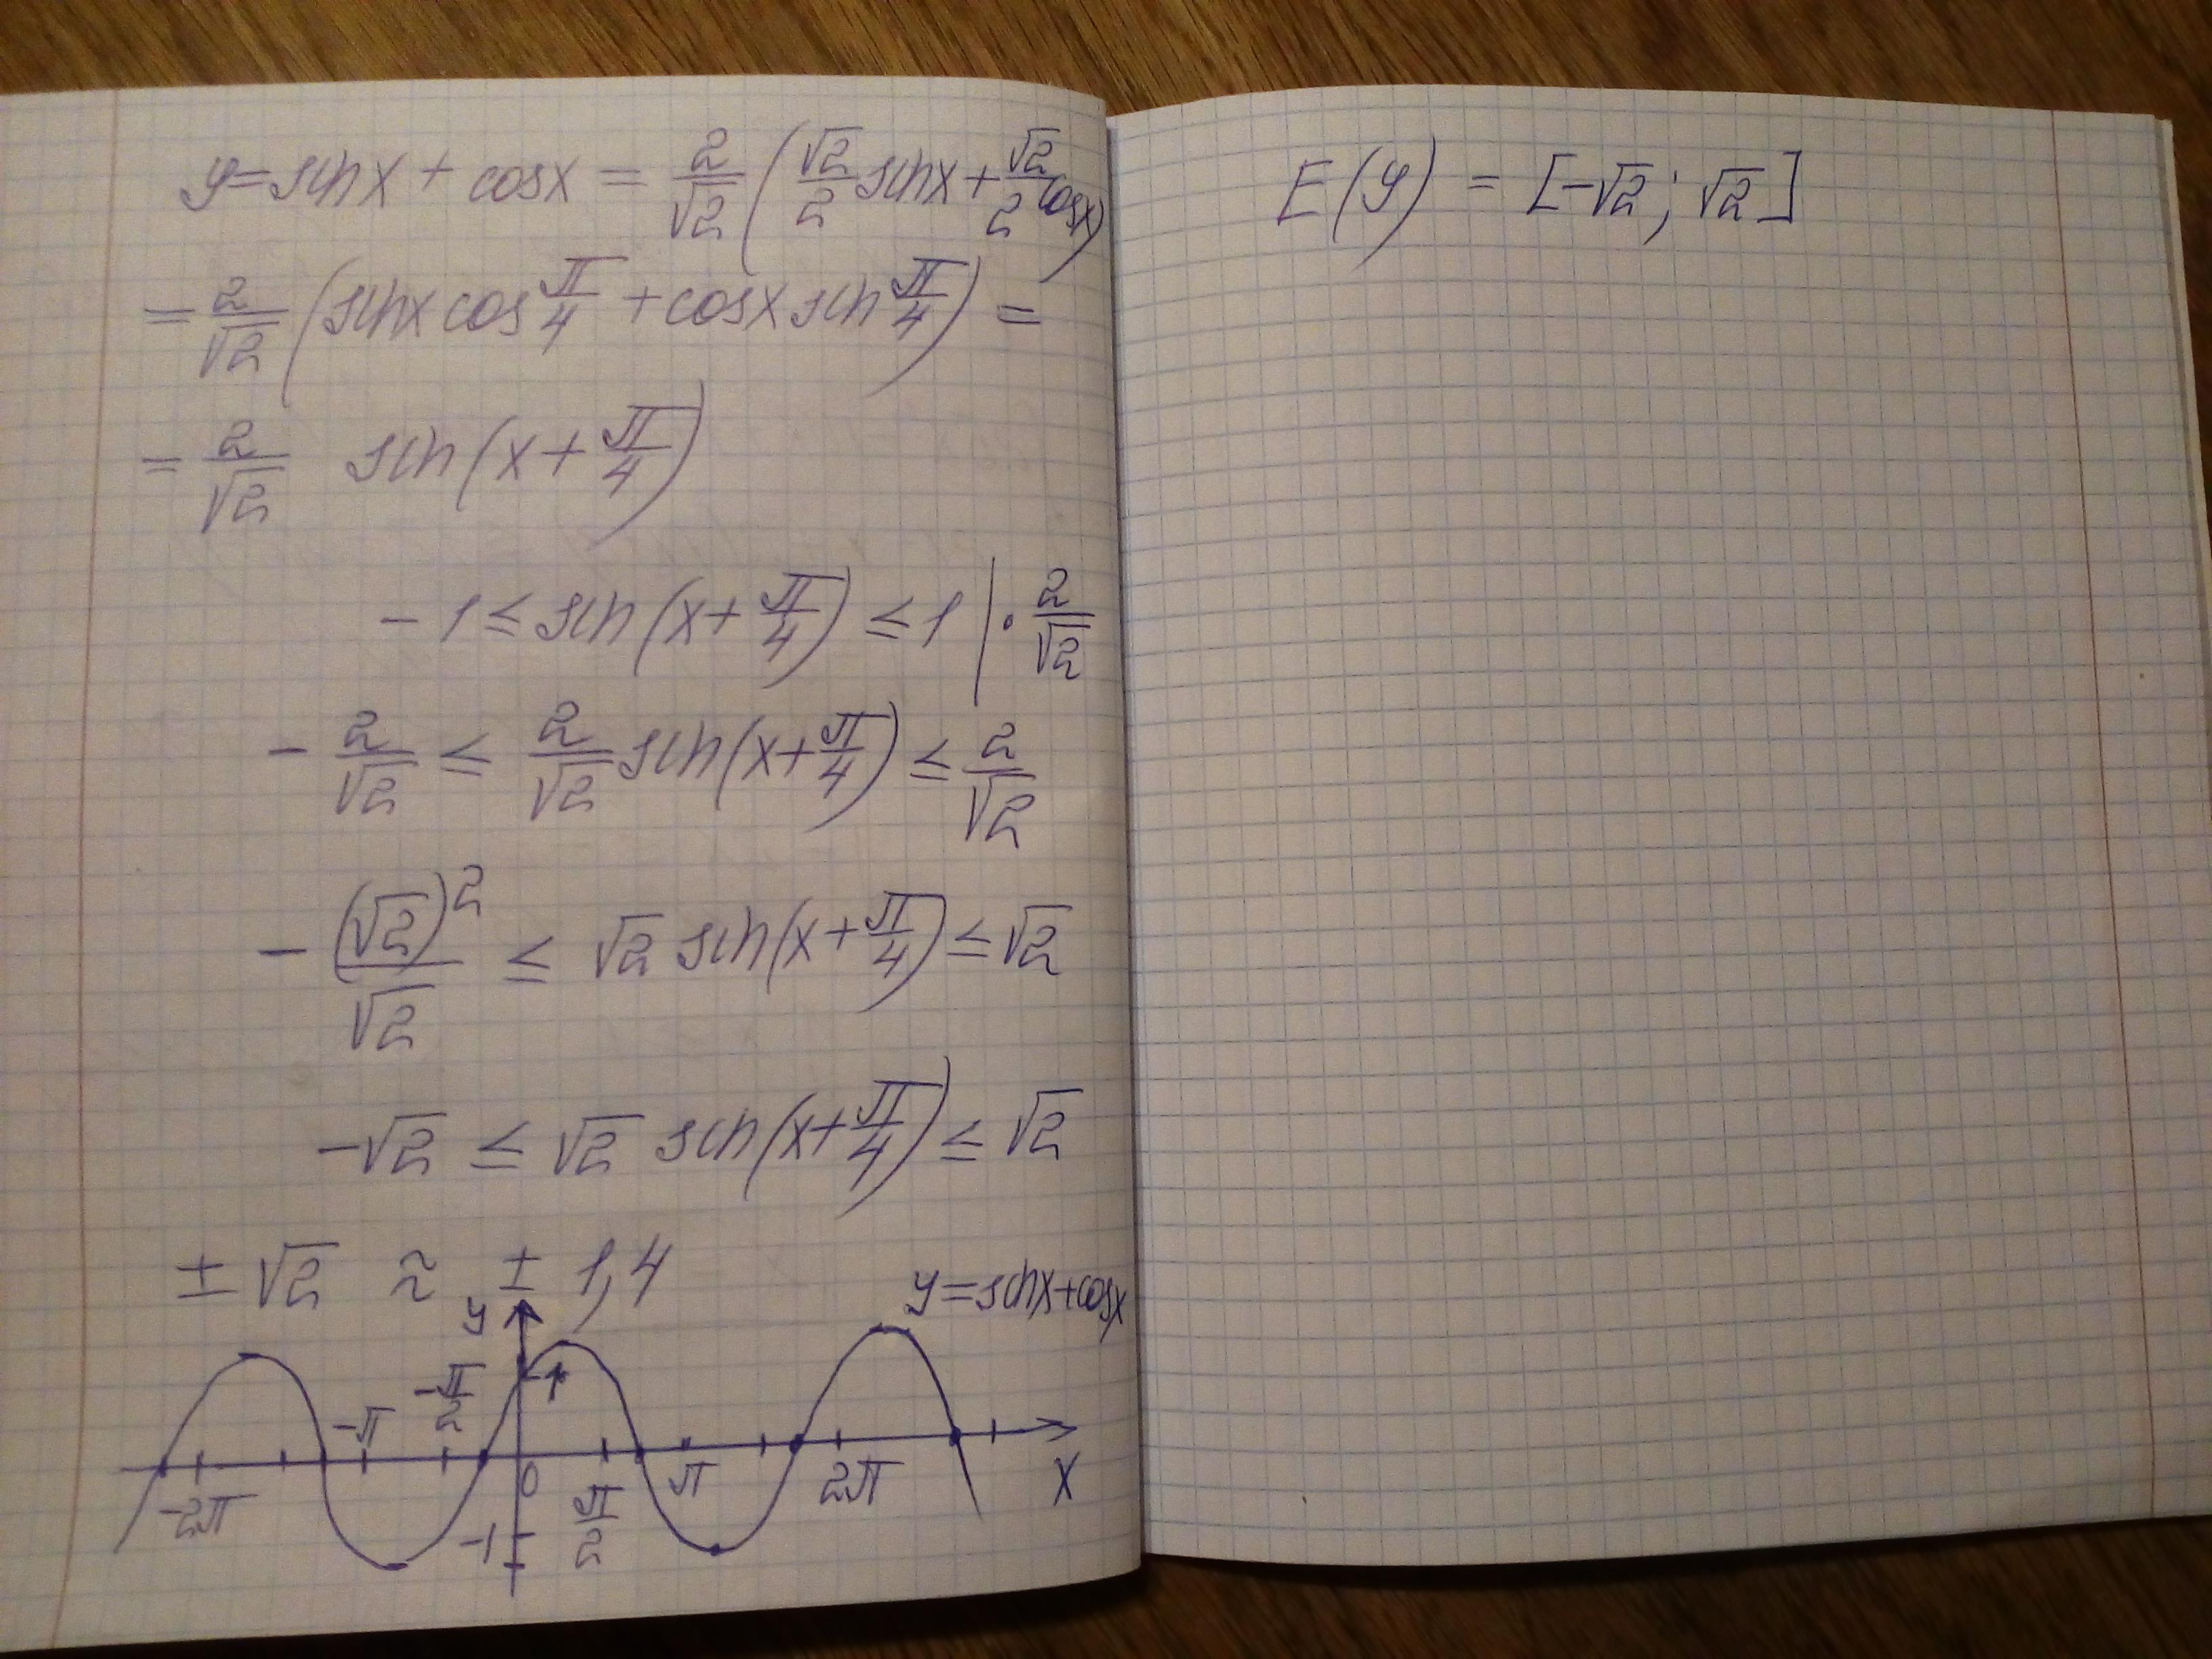 y = sin x + cos x = 2/√2 (√2/2 sin x + √2/2 cos x)
= 2/√2 (sin x cos π/4 + cos x sin π/4) =
= 2/√2 sin(x + π/4)
-1 ≤ sin(x + π/4) ≤ 1 | · 2/√2
- 2/√2 ≤ 2/√2 sin(x + π/4) ≤ 2/√2
- (√2)²/√2 ≤ √2 sin(x + π/4) ≤ √2
-√2 ≤ √2 sin(x + π/4) ≤ √2
± √2 ≈ ± 1,4
y = sin x + cos x
y
1
-2π
-π
-π/2
0
π/2
π
2π
x
-1
E(y) = [-√2; √2]